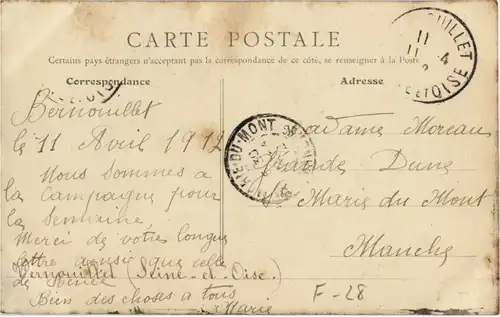 CARTE POSTALE
Certains pays étrangers n'acceptant pas la correspondance de ce côté, se renseigner à la Poste
Correspondance
Adresse
Bernouillet
le 11 Avril 1912
Nous sommes a
la Campagne pour
la semaine
Merci de votre longue
lettre ainsi que celle
de
Vernouillet (Seine-et-Oise.)
Bien des choses à tous
Marie
Madame Moreau
Grande Dune
Ste Marie du Mont
Manche
F-28
OUILLET
11
11 4
ET OISE
MARIE-DU-MONT